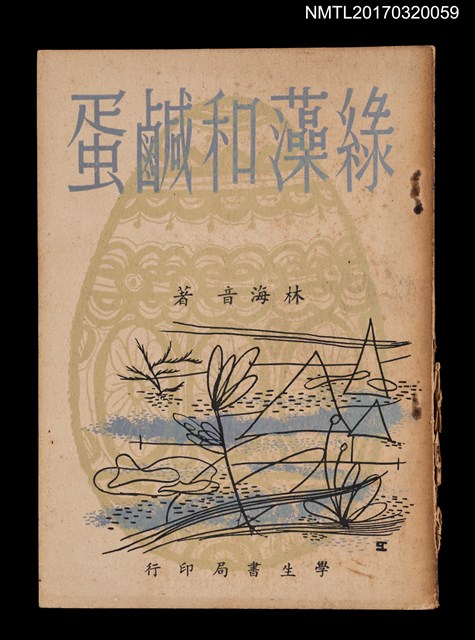 NMTL20170320059
綠藻和鹹蛋
林海音 著
學生書局印行